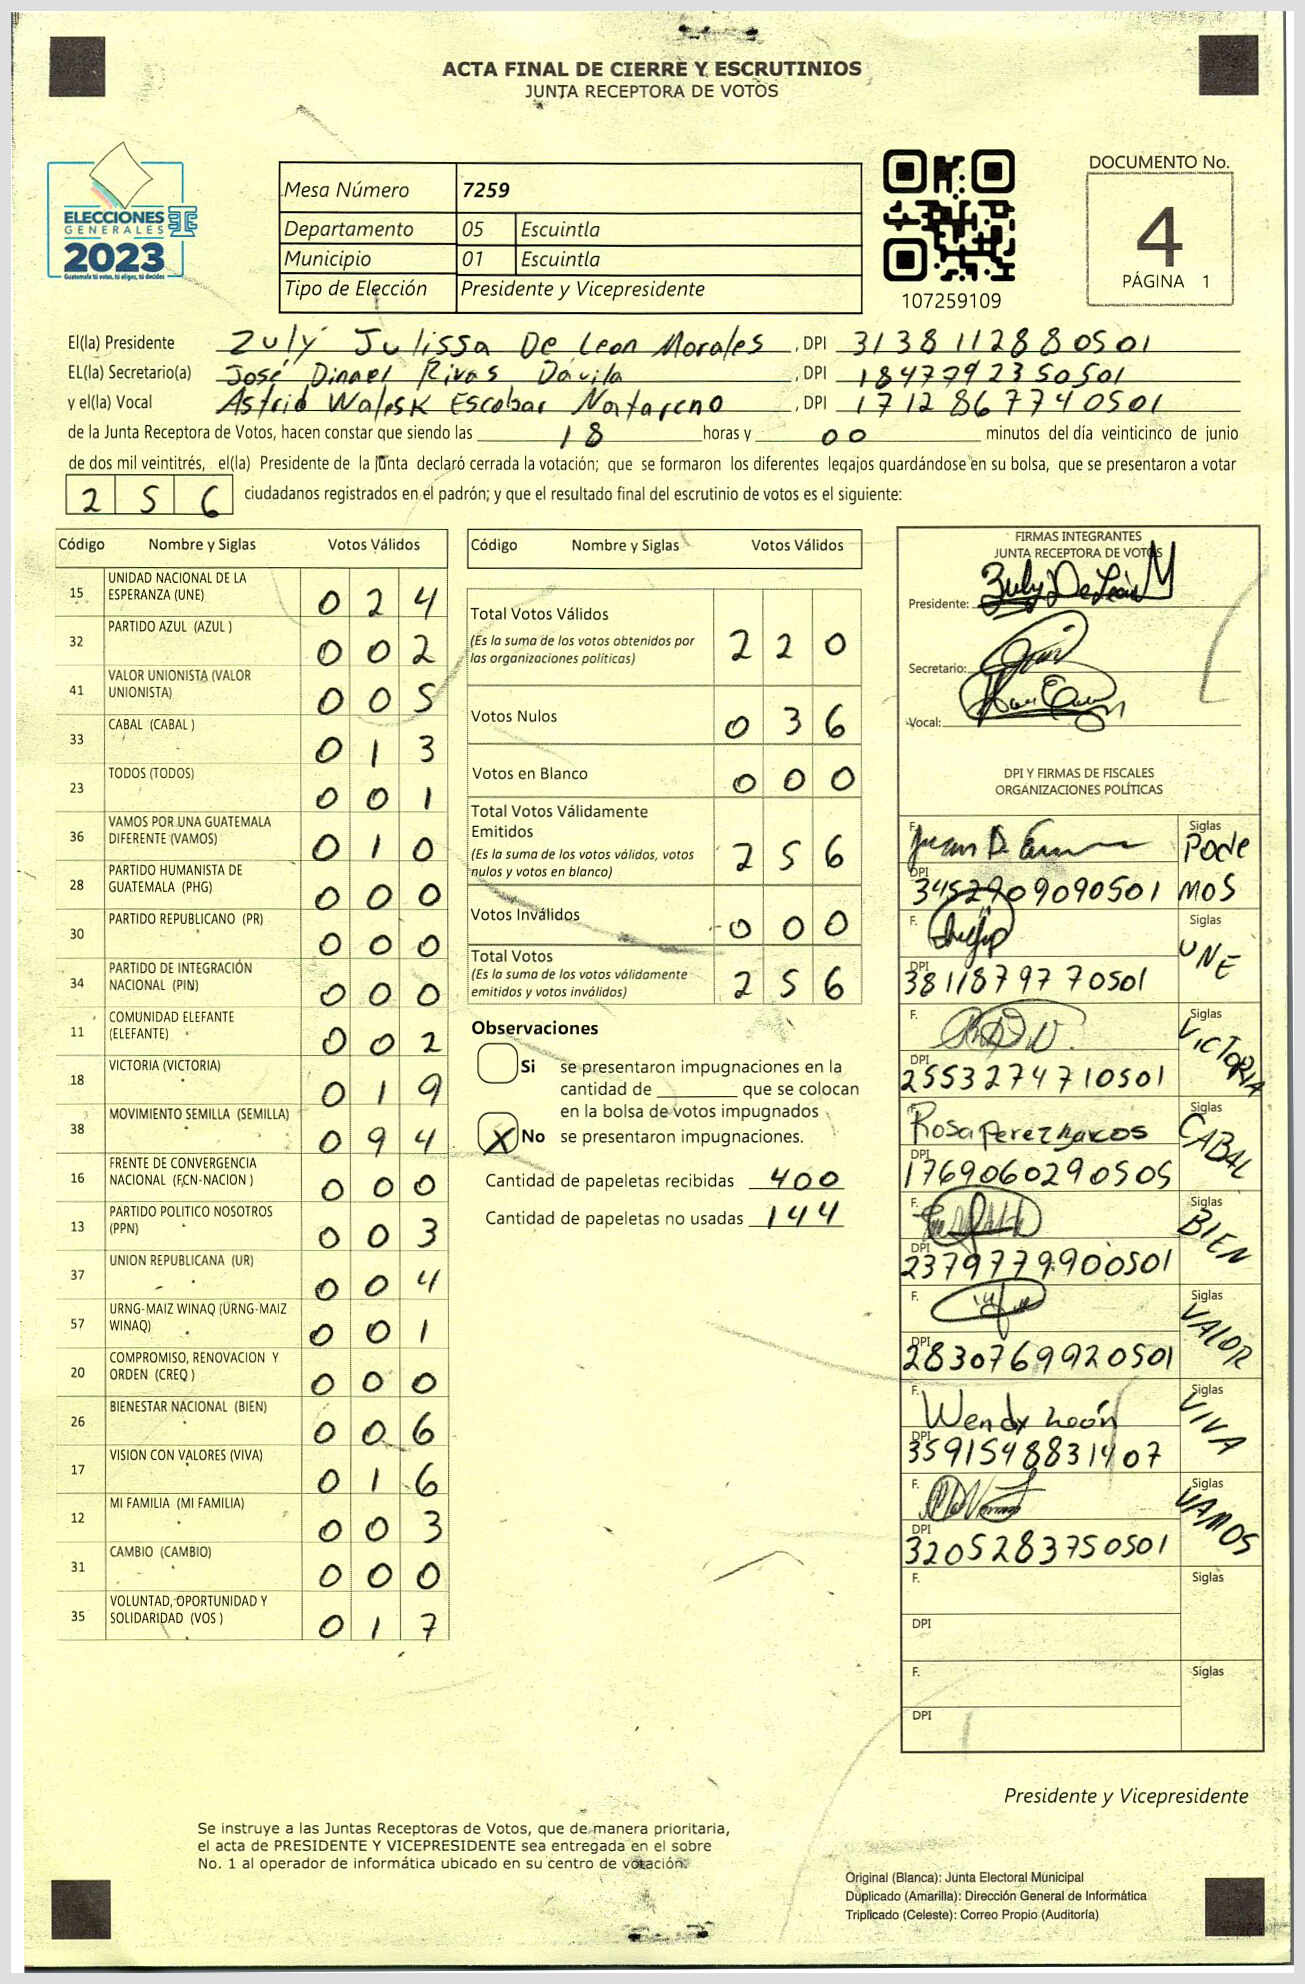 ACTA FINAL DE CIERRE Y ESCRUTINIOS
JUNTA RECEPTORA DE VOTOS
ELECCIONES
GENERALES
2023
Guatemala tú votas, tú eliges, tú decides
Mesa Número 7259
Departamento 05 Escuintla
Municipio 01 Escuintla
Tipo de Elección Presidente y Vicepresidente
107259109
DOCUMENTO No.
4
PÁGINA 1
El(la) Presidente Zuly Julissa De Leon Morales , DPI 3138112880501
EL(la) Secretario(a) José Dinael Rivas Davila , DPI 1847792350501
y el(la) Vocal Astrid Walesk Escobar Natareno , DPI 1712867740501
de la Junta Receptora de Votos, hacen constar que siendo las 18 horas y 00 minutos del día veinticinco de junio
de dos mil veintitrés, el(la) Presidente de la junta declaró cerrada la votación; que se formaron los diferentes legajos guardándose en su bolsa, que se presentaron a votar
256 ciudadanos registrados en el padrón; y que el resultado final del escrutinio de votos es el siguiente:
Código Nombre y Siglas Votos Válidos
15 UNIDAD NACIONAL DE LA ESPERANZA (UNE) 024
32 PARTIDO AZUL (AZUL ) 002
41 VALOR UNIONISTA (VALOR UNIONISTA) 005
33 CABAL (CABAL ) 013
23 TODOS (TODOS) 001
36 VAMOS POR UNA GUATEMALA DIFERENTE (VAMOS) 010
28 PARTIDO HUMANISTA DE GUATEMALA (PHG) 000
30 PARTIDO REPUBLICANO (PR) 000
34 PARTIDO DE INTEGRACIÓN NACIONAL (PIN) 000
11 COMUNIDAD ELEFANTE (ELEFANTE) 002
18 VICTORIA (VICTORIA) 019
38 MOVIMIENTO SEMILLA (SEMILLA) 094
16 FRENTE DE CONVERGENCIA NACIONAL (FCN-NACION ) 000
13 PARTIDO POLITICO NOSOTROS (PPN) 003
37 UNION REPUBLICANA (UR) 004
57 URNG-MAIZ WINAQ (URNG-MAIZ WINAQ) 001
20 COMPROMISO, RENOVACION Y ORDEN (CREO ) 000
26 BIENESTAR NACIONAL (BIEN) 006
17 VISION CON VALORES (VIVA) 016
12 MI FAMILIA (MI FAMILIA) 003
31 CAMBIO (CAMBIO) 000
35 VOLUNTAD, OPORTUNIDAD Y SOLIDARIDAD (VOS ) 017
Código Nombre y Siglas Votos Válidos
Total Votos Válidos 220
(Es la suma de los votos obtenidos por
las organizaciones políticas)
Votos Nulos 036
Votos en Blanco 000
Total Votos Válidamente
Emitidos 256
(Es la suma de los votos válidos, votos
nulos y votos en blanco)
Votos Inválidos 000
Total Votos 256
(Es la suma de los votos válidamente
emitidos y votos inválidos)
Observaciones
Si se presentaron impugnaciones en la
cantidad de ________ que se colocan
en la bolsa de votos impugnados
X No se presentaron impugnaciones.
Cantidad de papeletas recibidas 400
Cantidad de papeletas no usadas 144
FIRMAS INTEGRANTES
JUNTA RECEPTORA DE VOTOS
Presidente: Zuly De León M
Secretario:
Vocal:
DPI Y FIRMAS DE FISCALES
ORGANIZACIONES POLÍTICAS
F. Siglas Podemos
DPI 3452909090501
F. Siglas UNE
DPI 3811879770501
F. Siglas VICTORIA
DPI 2553274710501
F. Rosa Perez Marcos Siglas CABAL
DPI 1769060290505
F. Siglas BIEN
DPI 2379779900501
F. Siglas VALOR
DPI 2830769920501
F. Wendy León Siglas VIVA
DPI 3591548831407
F. Siglas VAMOS
DPI 3205283750501
F. Siglas
DPI
F. Siglas
DPI
Presidente y Vicepresidente
Se instruye a las Juntas Receptoras de Votos, que de manera prioritaria,
el acta de PRESIDENTE Y VICEPRESIDENTE sea entregada en el sobre
No. 1 al operador de informática ubicado en su centro de votación.
Original (Blanca): Junta Electoral Municipal
Duplicado (Amarilla): Dirección General de Informática
Triplicado (Celeste): Correo Propio (Auditoría)